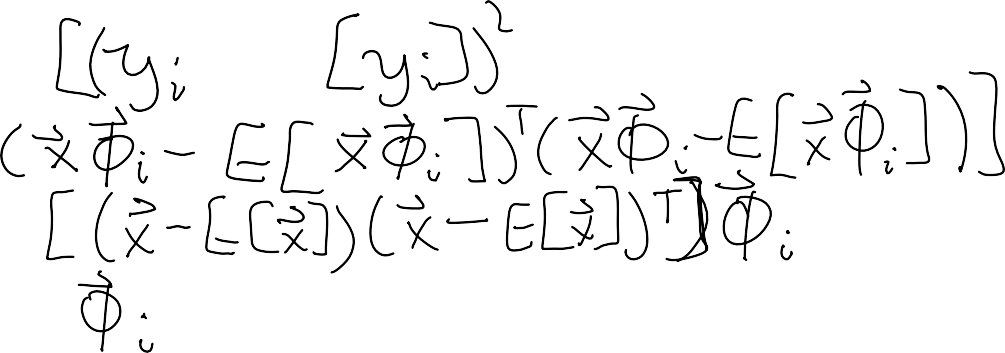 [(yᵢ [yᵢ])²
(x⃗ϕ⃗ᵢ - E[x⃗ϕ⃗ᵢ])ᵀ(x⃗ϕ⃗ᵢ - E[x⃗ϕ⃗ᵢ])]
[(x⃗ - E[x⃗])(x⃗ - E[x⃗])ᵀ]ϕ⃗ᵢ
ϕ⃗ᵢ